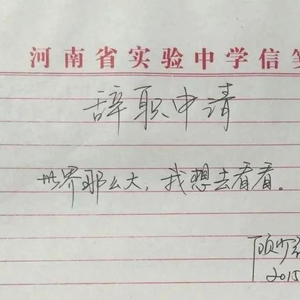 河南省实验中学信
辞职申请
世界那么大，我想去看看。
顾少
2015